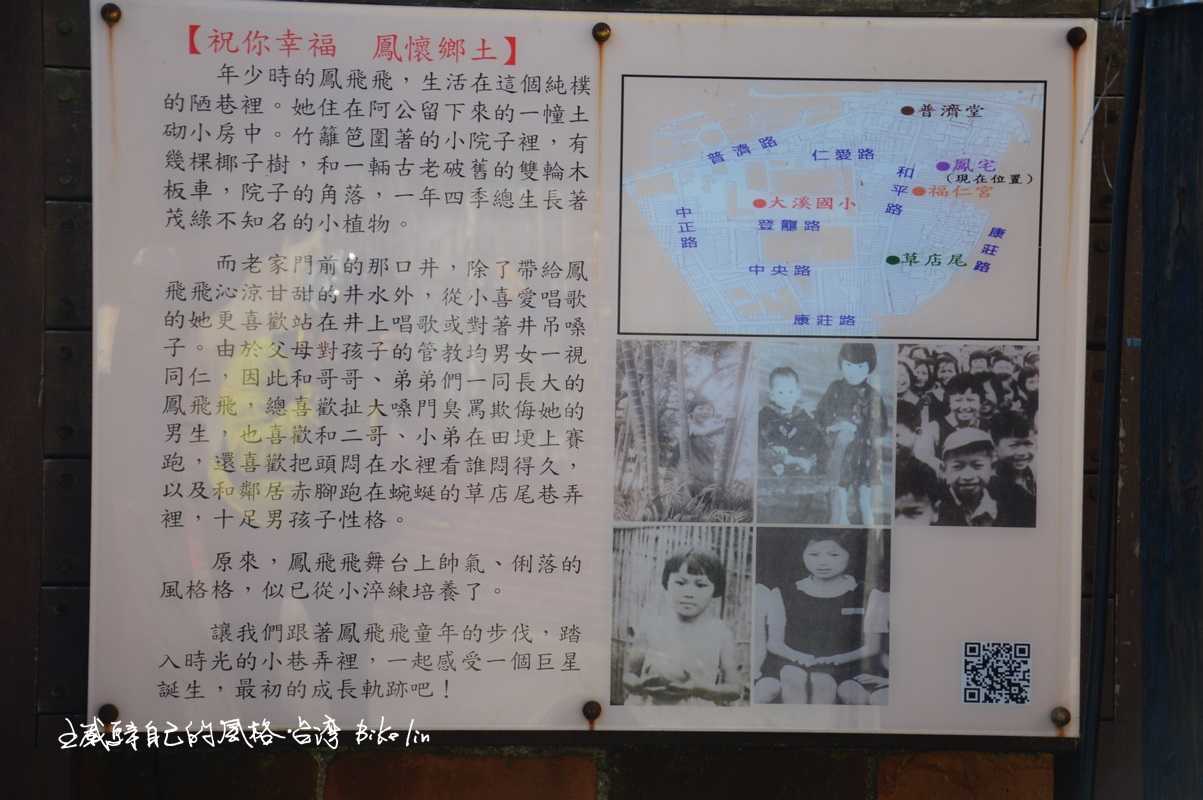 【祝你幸福 鳳懷鄉土】
年少時的鳳飛飛，生活在這個純樸
的陋巷裡。她住在阿公留下來的一幢土
砌小房中。竹籬笆圍著的小院子裡，有
幾棵椰子樹，和一輛古老破舊的雙輪木
板車，院子的角落，一年四季總生長著
茂綠不知名的小植物。
而老家門前的那口井，除了帶給鳳
飛飛沁涼甘甜的井水外，從小喜愛唱歌
的她更喜歡站在井上唱歌或對著井吊嗓
子。由於父母對孩子的管教均男女一視
同仁，因此和哥哥、弟弟們一同長大的
鳳飛飛，總喜歡扯大嗓門臭罵欺侮她的
男生，也喜歡和二哥、小弟在田埂上賽
跑，還喜歡把頭悶在水裡看誰悶得久，
以及和鄰居赤腳跑在蜿蜒的草店尾巷弄
裡，十足男孩子性格。
原來，鳳飛飛舞台上帥氣、俐落的
風格格，似已從小淬練培養了。
讓我們跟著鳳飛飛童年的步伐，踏
入時光的小巷弄裡，一起感受一個巨星
誕生，最初的成長軌跡吧！
普濟堂
普濟路
仁愛路
和平路
鳳宅
(現在位置)
福仁宮
大溪國小
中正路
登龍路
康莊路
草店尾
中央路
康莊路
自己的風格·台湾 Biko lin